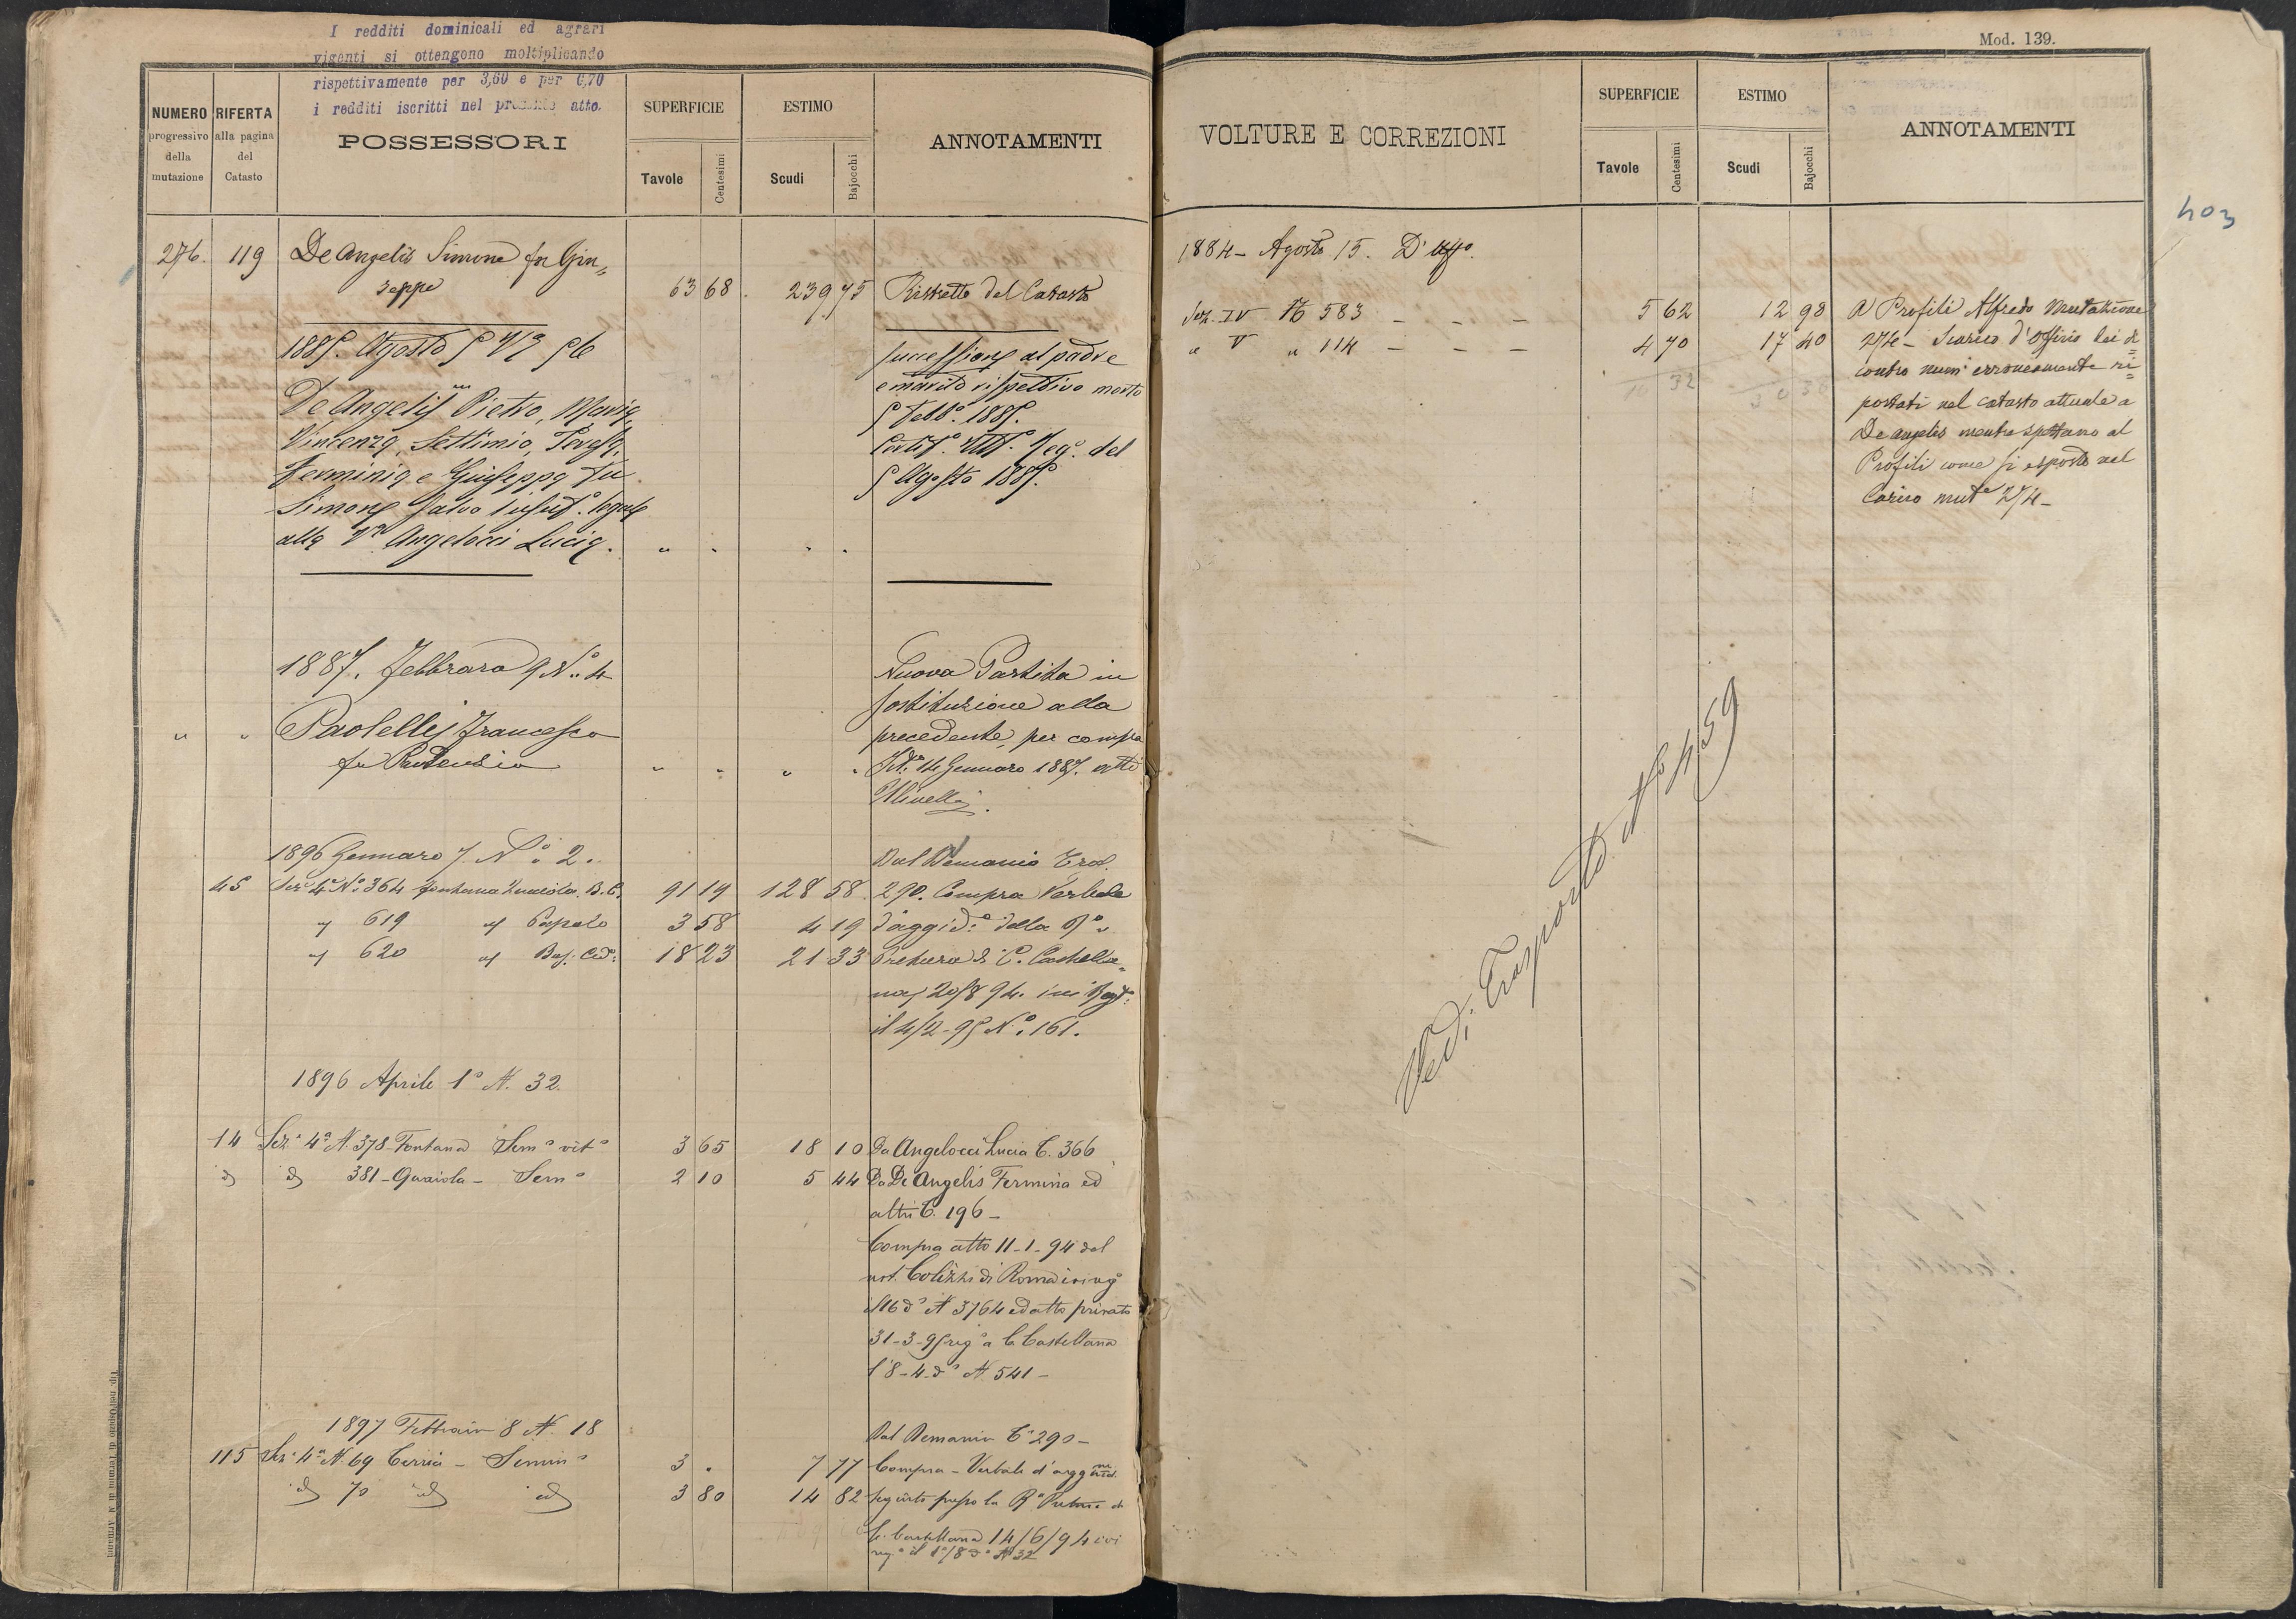 I redditi dominicali ed agrari
vigenti si ottengono moltiplicando
rispettivamente per 3,60 e per 6,70
i redditi iscritti nel presente atto.
NUMERO progressivo della mutazione
RIFERTA alla pagina del Catasto
POSSESSORI
SUPERFICIE
Tavole Centesimi
ESTIMO
Scudi Bajocchi
ANNOTAMENTI
276. 119 De Angelis Simone fu Giu=
seppe 63 68 239 75 Ristretto del Catasto
1885. Agosto 5 N° 56
Successione al padre
e marito rispettivo morto
De Angelis Pietro, Maria,
5 Febb° 1885.
Vincenza, Settimio, Teresa,
Certif° Uff° Reg° del
Ferminia e Giuseppa fu
5 Agosto 1885.
Simone salvo l'usuf° legale
alla Va Angelocci Lucia. " " " "
1887. Febbraro 9 N° 4
Nuova Partita in
sostituzione alla
" " Paolelli Francesco
precedente, per compra
fu Prudenzio " " " "
14 Gennaro 1887. atti
Ulivelli.
1896 Gennaro 7. N° 2.
Dal Demanio
45 Sez° 4a N° 364 Fontana Quaiola. B. C. 91 19 128 58 290. Compra Verbale
" 619 " Pupalo 3 58 4 19 d'aggid° della R°
" 620 " 18 23 21 33 Pretura di C. Castella=
na, 20/8 94. ivi Regt°
il 4/2-95 N° 161.
1896 Aprile 1° N. 32.
14 Sez° 4a N. 378 Fontana Sem° vit° 3 65 18 10 Da Angelocci Lucia C. 366
id id 381 - Quaiola - Sem° 2 10 5 44 Da De Angelis Fermina ed
altri C. 196 -
Compra atto 11-1-94 del
not. Colizzi di Roma ivi reg°
il 16 d° N 3764 ed atto privato
31-3-95 reg° a C. Castellana
l'8-4-d° N. 541 -
1897 Febbraio 8 N. 18
Dal Demanio C° 290 -
115 Sez° 4a N. 69 Cerria - Semin° 3 " 7 77 Compra - Verbale d'aggne
id 70 id id 3 80 14 82 seguito presso la Ra Pretura di
C. Castellana 14/6/94 ivi
reg° il 1°/8 d° N 32
Mod. 139.
VOLTURE E CORREZIONI
SUPERFICIE
Tavole Centesimi
ESTIMO
Scudi Bajocchi
ANNOTAMENTI
403
1884 - Agosto 15. D'Uffo.
Sez. IV N 583 - - - 5 62 12 98 A Profili Alfredo Mutazione
" V " 114 - - - 4 70 17 40 274 - Scarico d'Officio dei di
contro numi erroneamente ri=
portati nel catasto attuale a
De Angelis mentre spettano al
Profili come si espose nel
Carico muta 274 -
Vedi Trasporto N° 459